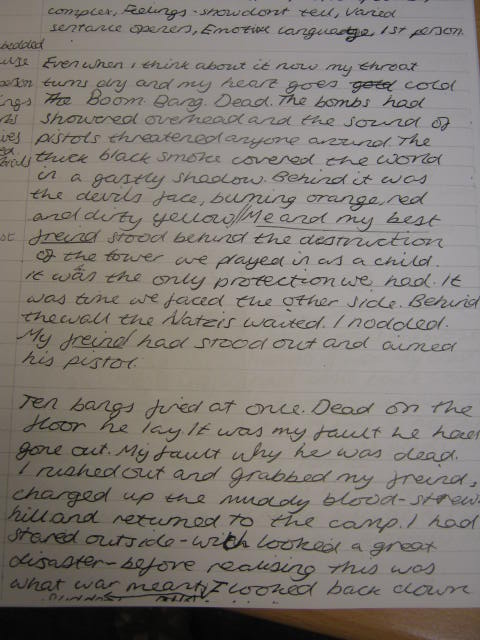 complex, Feelings - show dont tell, Varied
sentance openers, Emotive language, 1st person
bedded
Even when i think about it now my throat
turns dry and my heart goes cold
The Boom. Bang. Dead. The bombs had
showered overhead and the sound of
pistols threatened anyone around. The
thick black smoke covered the world
in a gastly shadow. Behind it was
the devils face, burning orange, red
and dirty yellow//Me and my best
freind stood behind the destruction
of the tower we played in as a child.
it was the only protection we had. It
was time we faced the other side. Behind
the wall the Natzis waited. I nodded.
My freind had stood out and aimed
his pistol.
Ten bangs fired at once. Dead on the
floor he lay. It was my fault he had
gone out. My fault why he was dead.
I rushed out and grabbed my freind,
charged up the muddy blood-strew
hill and returned to the camp. I had
stared outside - looked a great
disaster - before realising this was
what war meant// I looked back down